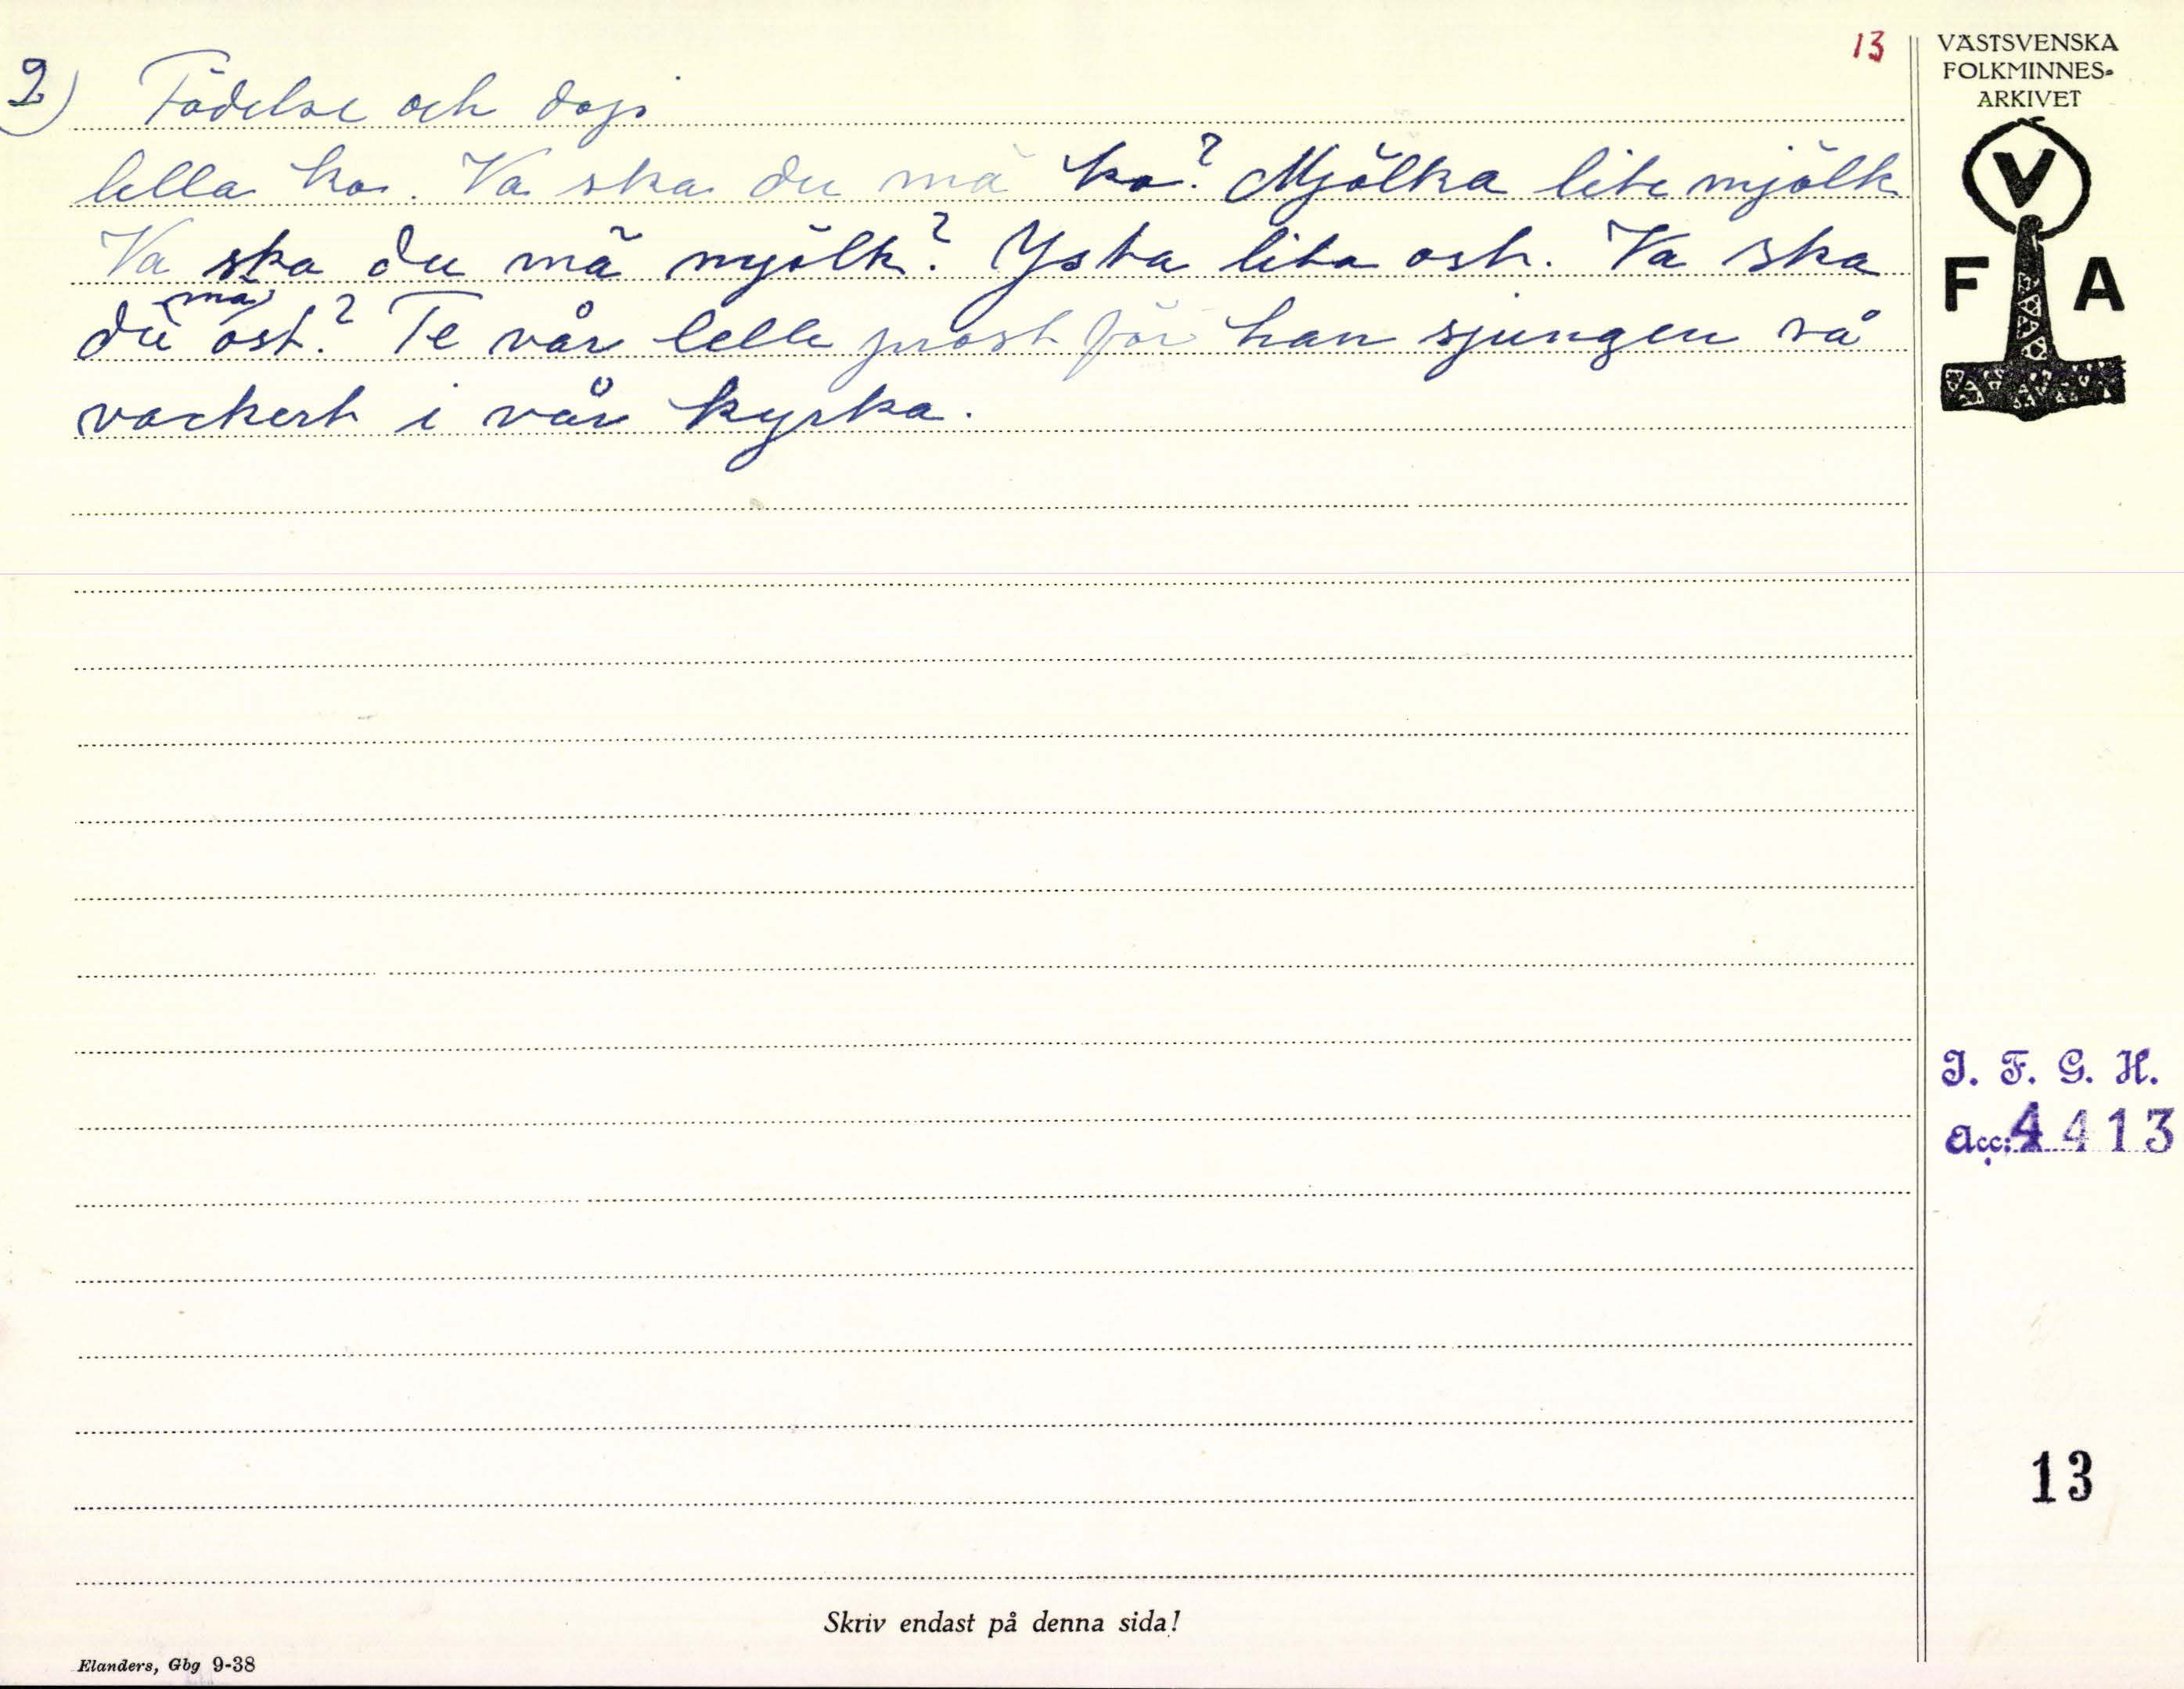 13
VÄSTSVENSKA
FOLKMINNES-
ARKIVET
V
F A
2) Födelse och dop
lella ko. Va ska du mä ko? Mjölka lite mjölk
Va ska du mä mjölk? Ysta lita ost. Va ska
du mä ost? Te vår lelle prost för han sjungen så
vackert i vår kyrka.
I. F. G. H.
Acc: 4413
13
Skriv endast på denna sida!
Elanders, Gbg 9-38